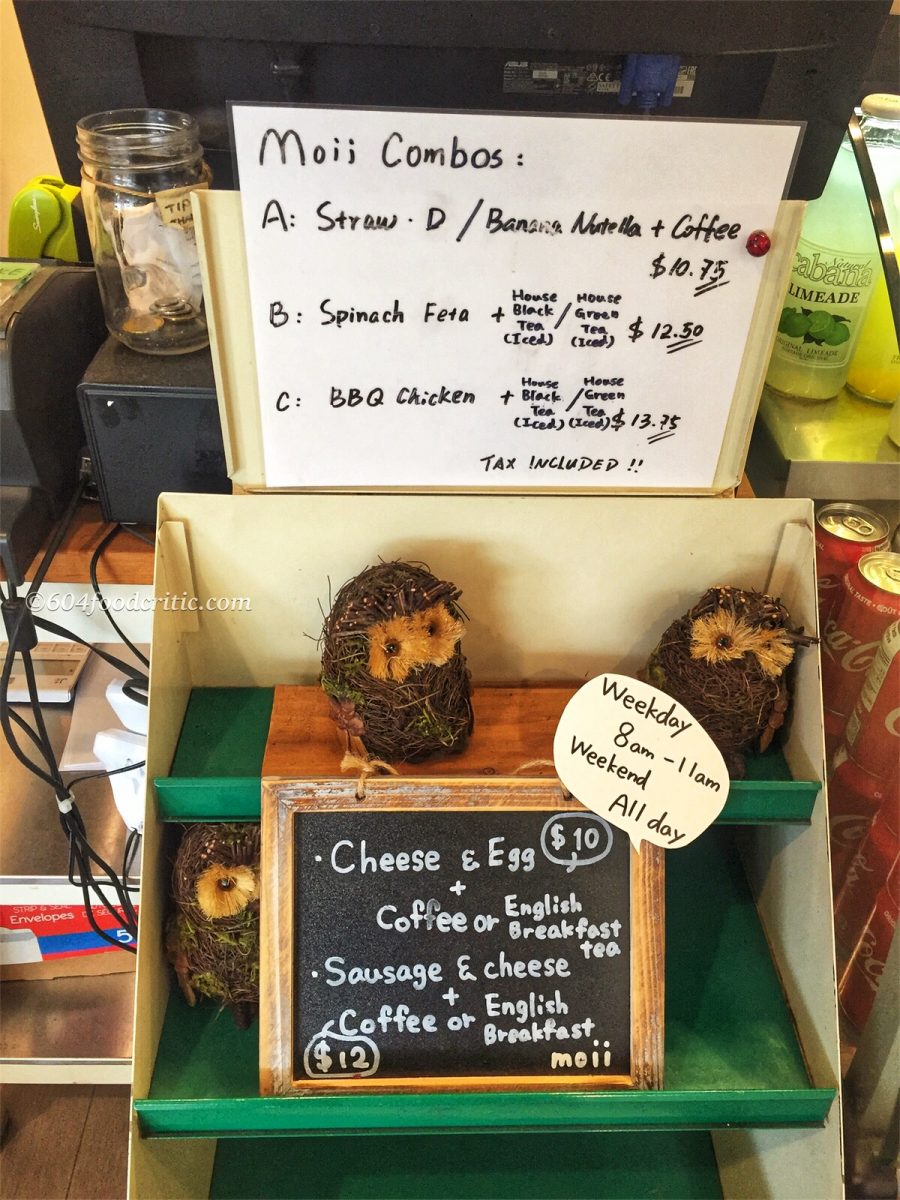 ASUS
Moii Combos:
A: Straw. D / Banana Nutella + Coffee
$10.75
B: Spinach Feta + House Black Tea (Iced) / House Green Tea (Iced) $12.50
C: BBQ Chicken + House Black Tea (Iced) / House Green Tea (Iced) $13.75
TAX INCLUDED !!
TIP
Natural
Cabana
LIMEADE
ORIGINAL LIMEADE
©604foodcritic.com
Weekday
8am - 11am
Weekend
All day
• Cheese & Egg $10
+
Coffee or English Breakfast tea
• Sausage & cheese
+
Coffee or English Breakfast
$12
moii
STRIP & SEAL
Envelopes
5